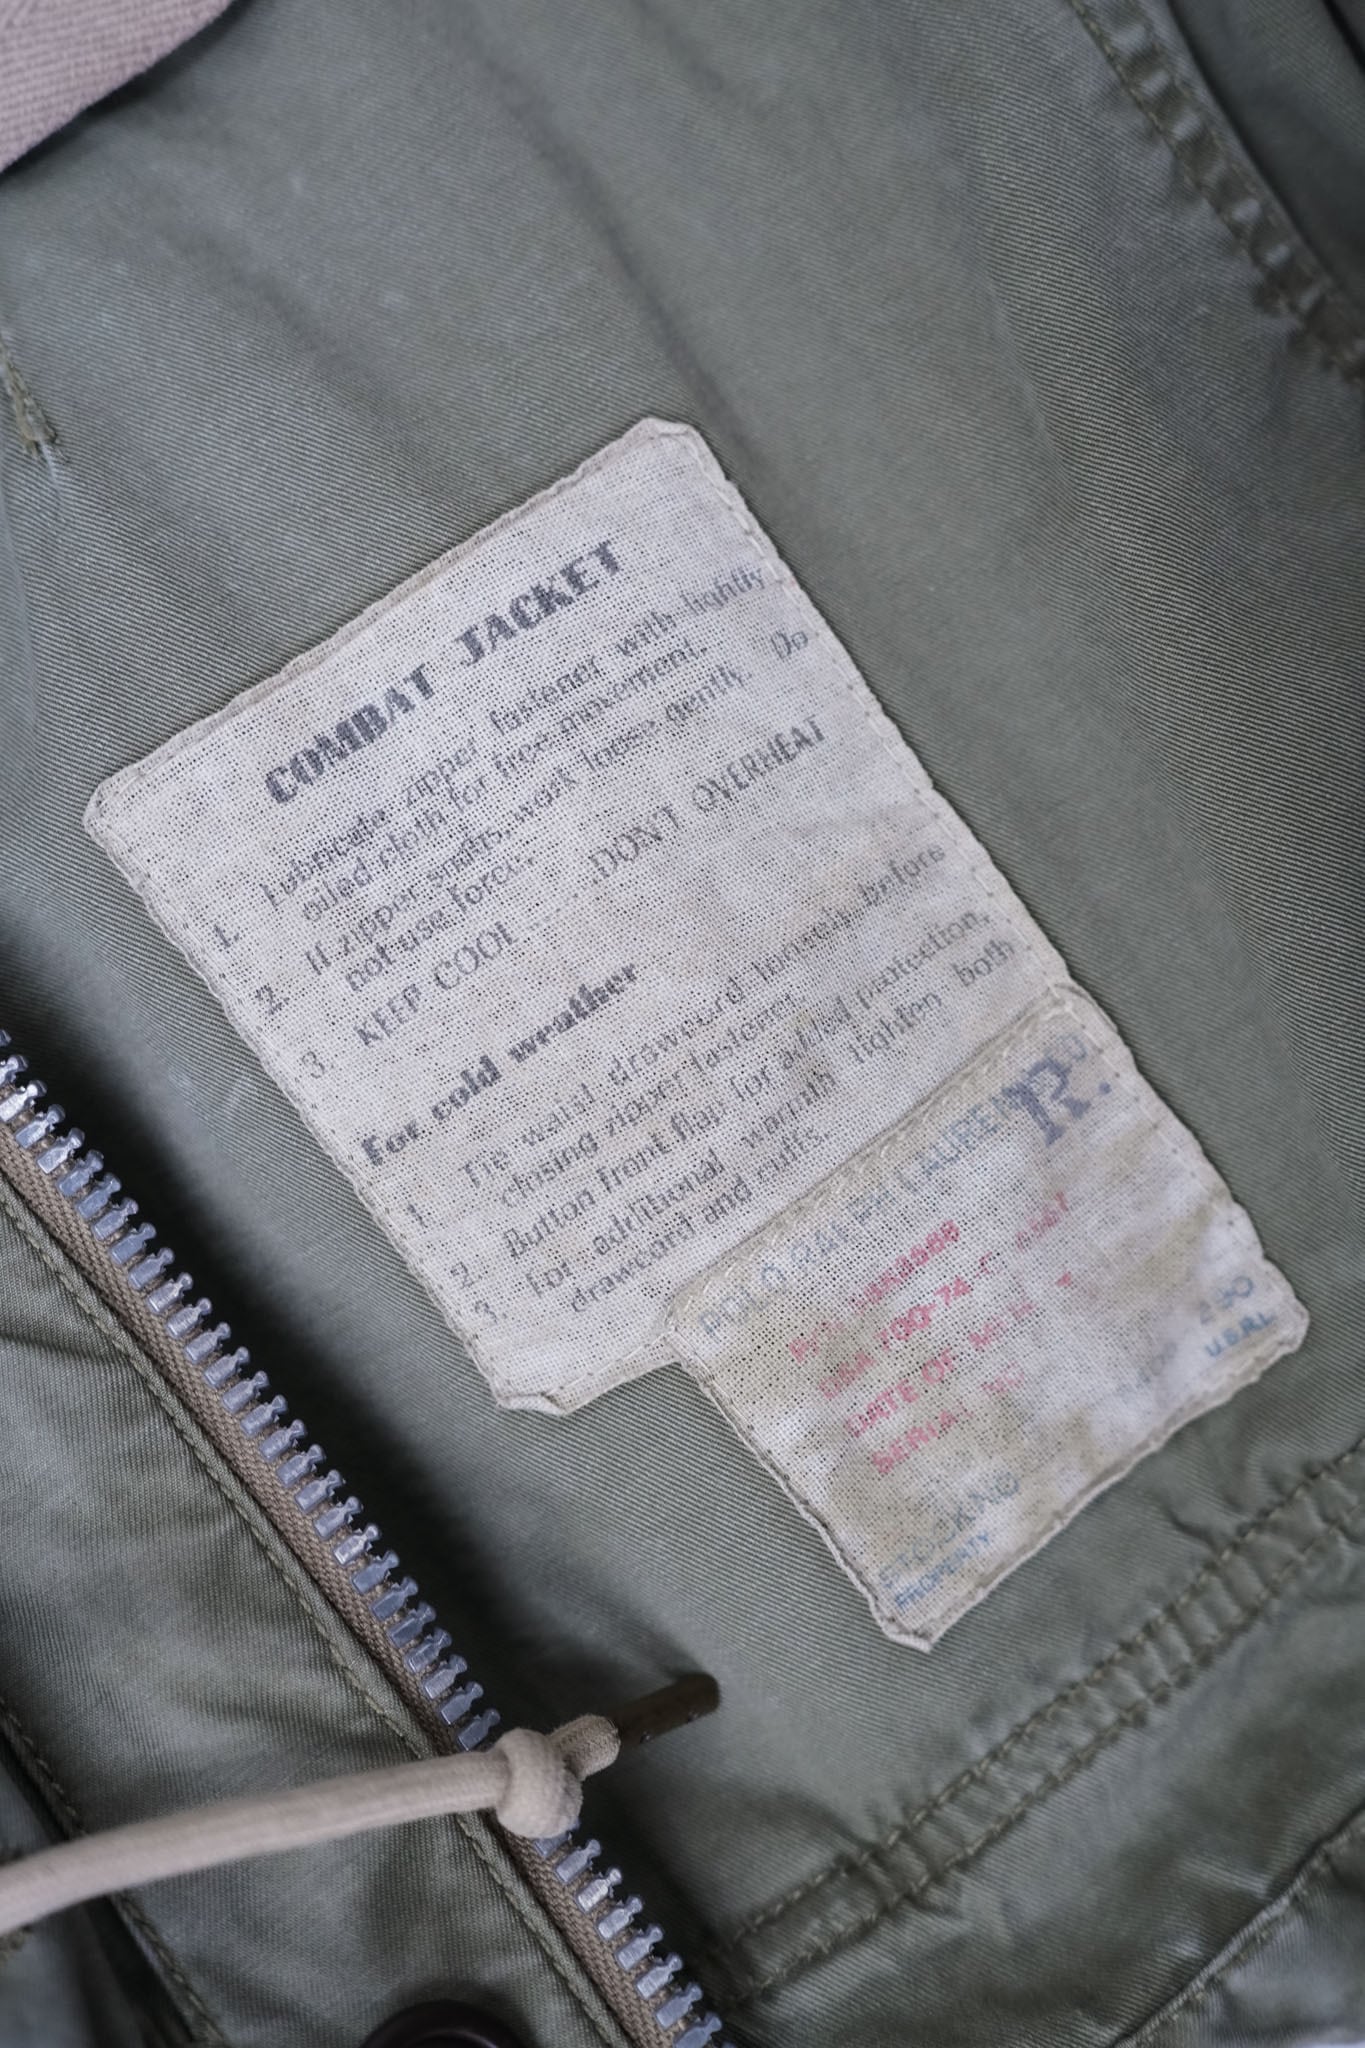 COMBAT JACKET
1. Lubricate zipper fastener with lightly
oiled cloth for free movement.
2. If zipper snags, work loose gently. Do
not use force.
3. KEEP COOL ..... DON'T OVERHEAT
For cold weather
1. Tie waist drawcord loosely before
closing zipper fastener.
2. Button front flap for added protection.
3. For additional warmth tighten both
drawcord and cuffs.
POLO RALPH LAUREN
R.
100-74
DATE OF
SERIAL
U.S.R.L
STOCK NO
PROPERTY